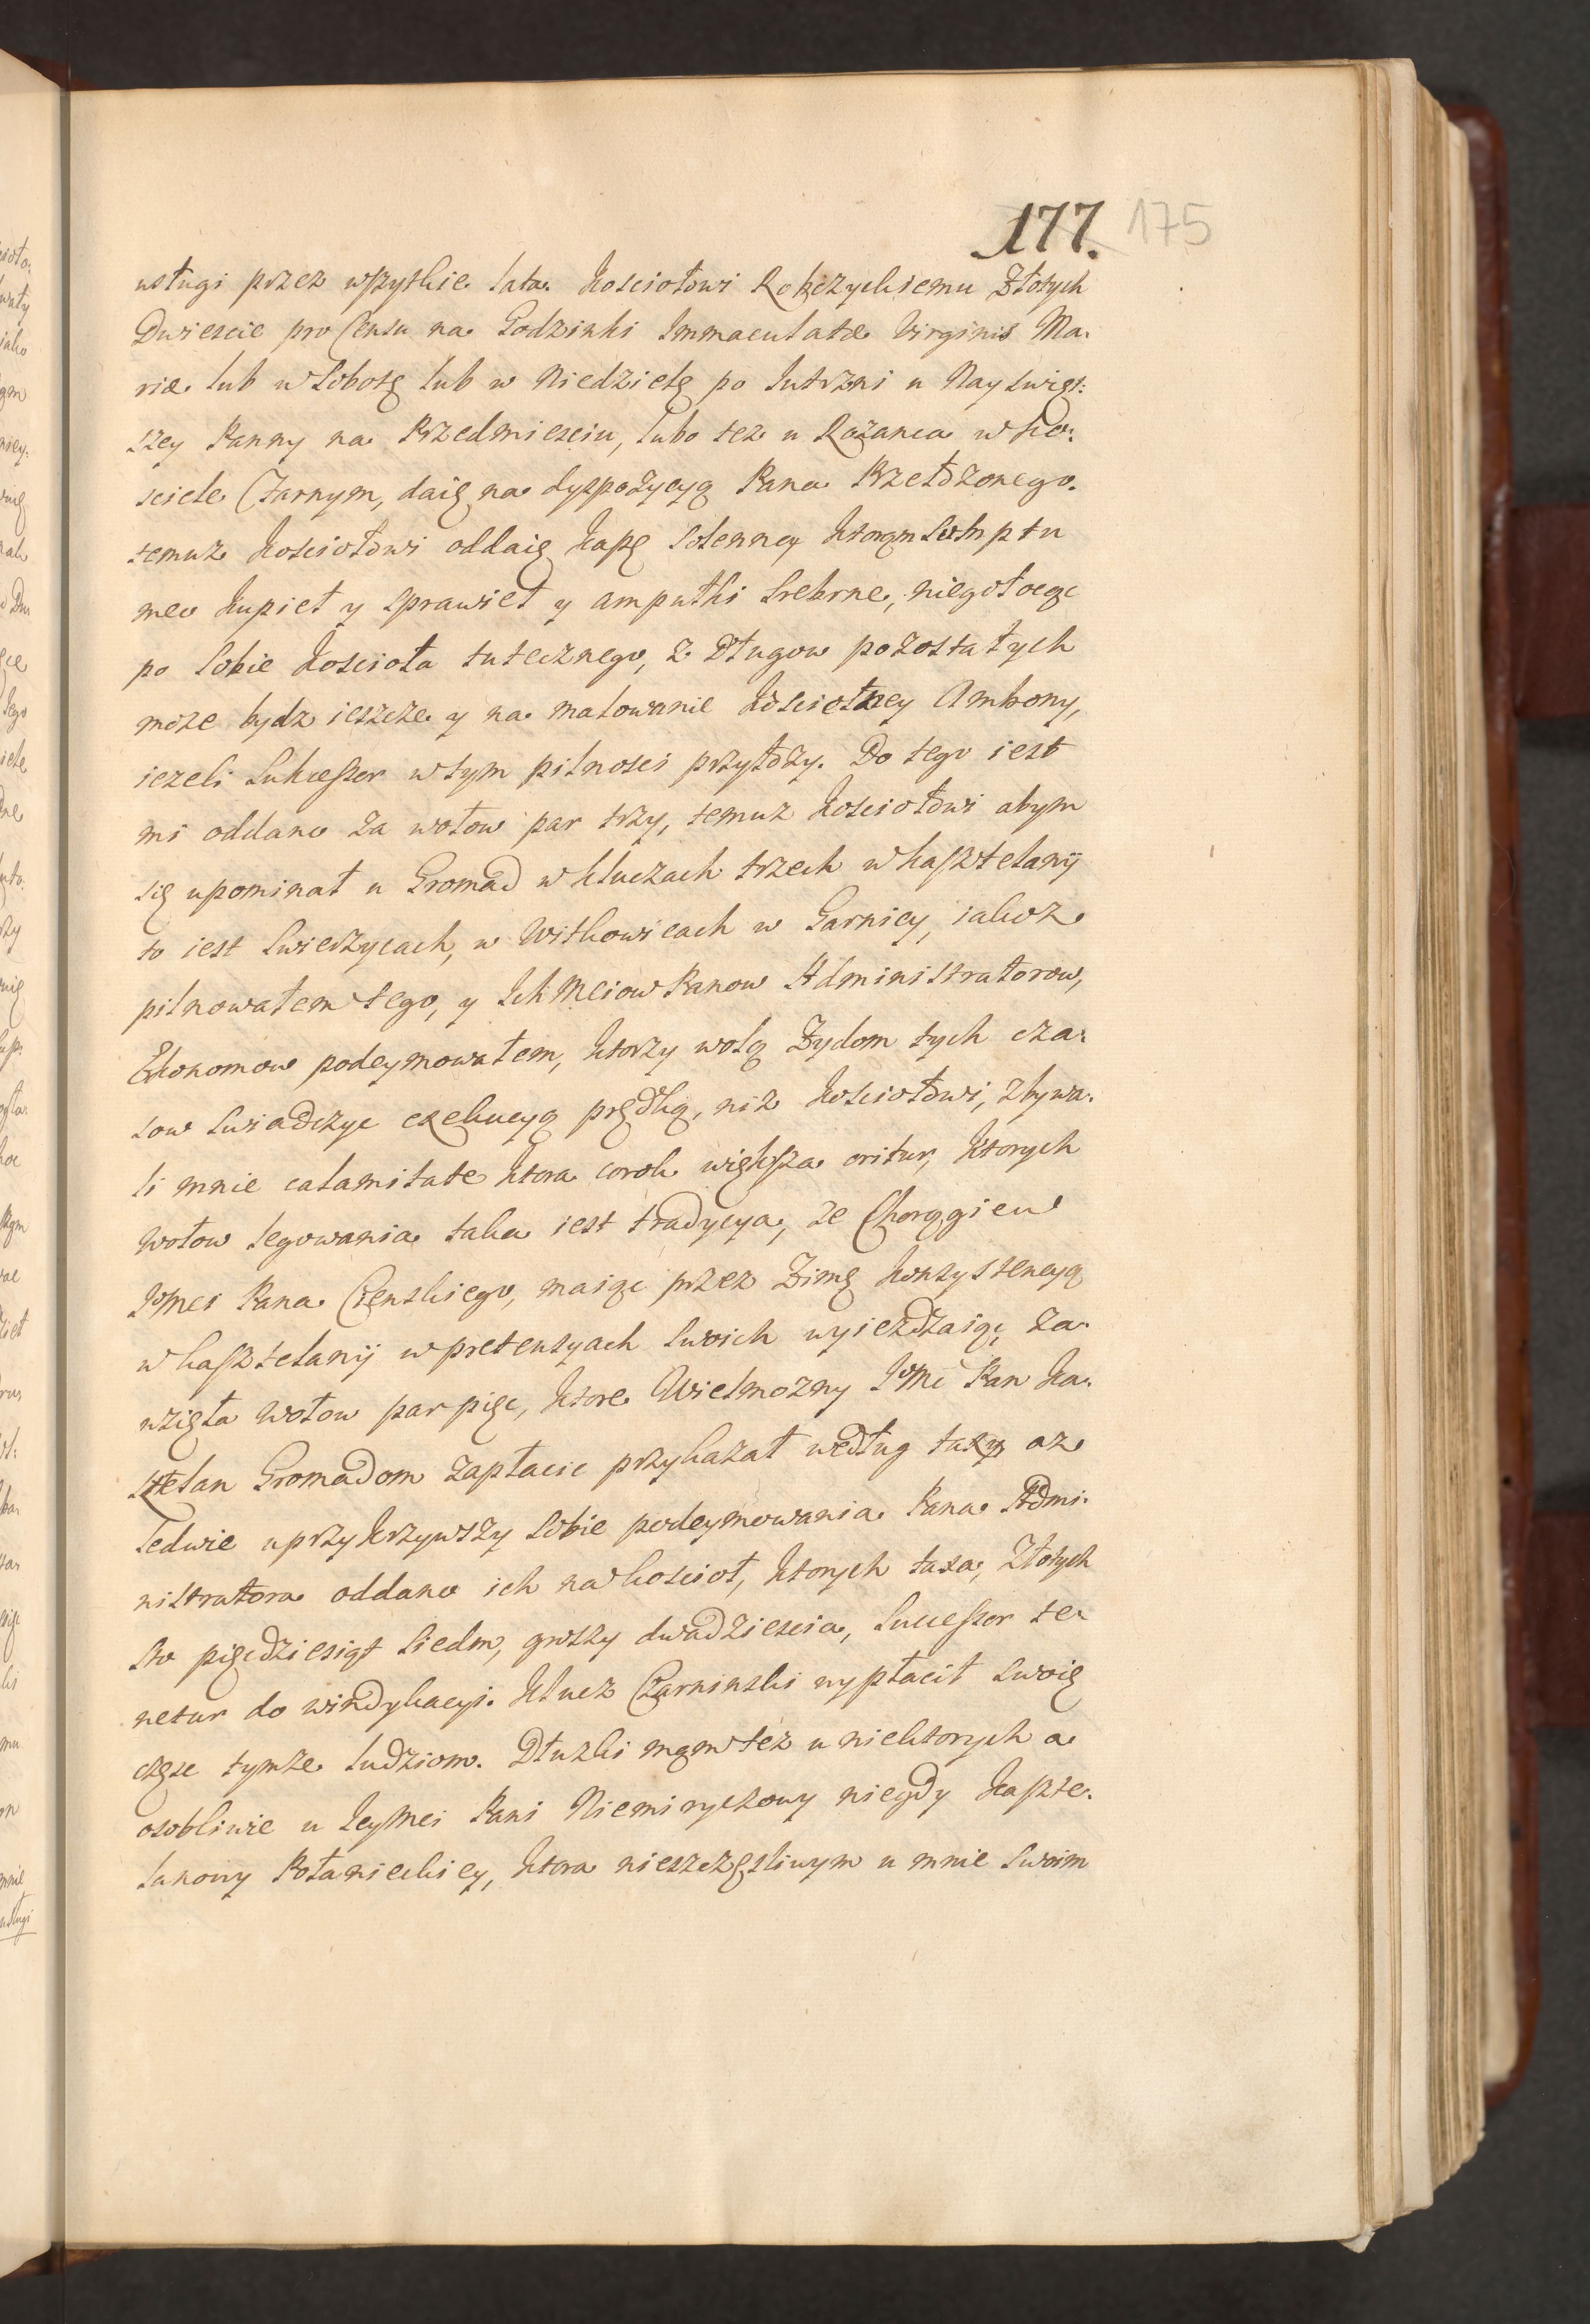 177. 175
usługi przez wszytkie lata. Kosciołowi Rokczyckiemu Złotych
Dwiescie pro Censu na Godzinki Immaculatæ Virginis Ma:
riæ lub w Sobotę lub w Niedzielę po Jutrzni u Nayswięt:
szey Panny na Przedmiesciu, lubo tez u Rozanca w Ko:
sciele Czarnym, daię na dyspozycyą Pana Przełozonego.
temuz Kosciołowi oddaię Kapę Solenney ktorąm Sumptu
meo kupieł y sprawieł y ampułki Srebrne,
po Sobie Koscioła tutecznego, z Długow pozostałych
moze bydz ieszcze y na malowanie Koscielney Ambony,
iezeli Sukcessor w tym pilnosci przyłozy. Do tego iest
mi oddano za wołow par trzy, temuz Kosciołowi abym
się upominał u Gromad w kluczach trzech w kasztelanij
to iest Swierzycach, w Witkowicach w Garnicy, iakoz
pilnowałem tego, y IchMciow Panow Administratorow,
Ekonomow podeymowałem, ktorzy wolą Zydom tych cza:
sow swiadczyc exekucyą prędką, niz Kosciołowi, zbywa:
li mnie calamitate ktora corok większa oritur, ktorych
wołow legowania taka iest tradycya, ze Chorągiew
JoMci Pana Cienskiego, maiąc przez Zimę konzystencyą
w kasztelanij w pretensyach swoich wyiezdzaiąc za:
wzięła wołow par pięc, ktore Wielmozny JoMc Pan Ka:
sztelan Gromadom zapłacic przykazał według taxy az
ledwie uprzykrzywszy sobie podeymowania Pana Admi:
nistratora oddano ich na koscioł, ktorych taxa, Złotych
sto pięcdziesiąt siedm, groszy dwadziescia, Successor te:
netur do windykacyi. Klucz Czarninski wypłacił swoię
częsc tymze ludziom. Dłuzki mąm tez u niektorych a
osobliwie u JeyMci Pani Niemiryczowy niegdy kaszte:
lanowy Połanieckiey, ktora nieszczęsliwym u mnie swoim